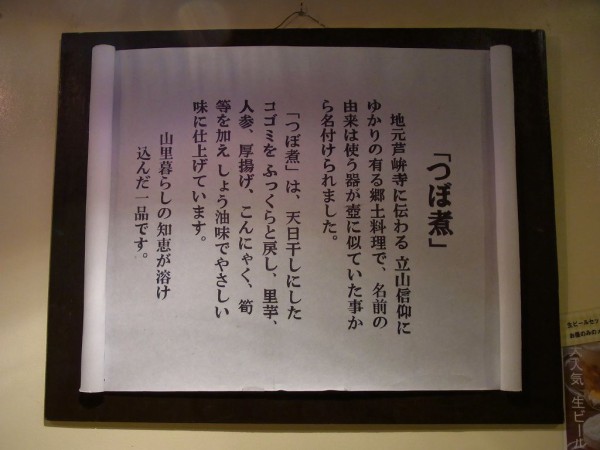 「つぼ煮」
地元芦峅寺に伝わる 立山信仰に
ゆかりの有る郷土料理で、名前の
由来は使う器が壺に似ていた事か
ら名付けられました。
「つぼ煮」は、天日干しにした
コゴミを ふっくらと戻し、里芋、
人参、厚揚げ、こんにゃく、筍
等を加え しょう油味でやさしい
味に仕上げています。
山里暮らしの知恵が溶け
込んだ一品です。
生ビールセッ
大人気/生ビール